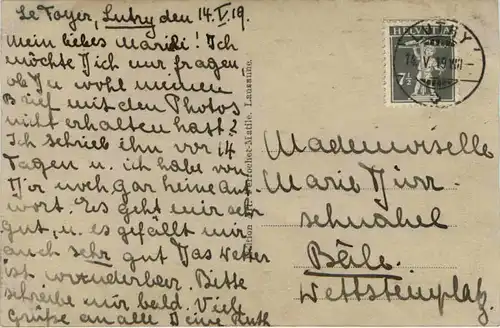 Le Foyer, Lutry den 14.V.19.
Mein liebes Marieli! Ich
möchte Dich nur fragen
ob Du wohl meinen
Brief mit den Photos
nicht erhalten hast?
Ich schrieb ihn vor 14
Tagen u. ich habe von
Dir noch gar keine Ant-
wort. Es geht mir sehr
gut, u. es gefällt mir
auch sehr gut. Das Wetter
ist wunderbar. Bitte
schreibe mir bald. Viele
Grüße an alle Deine Ruth
Perrochet-Matile, Lausanne.
HELVETIA
7½
14.V.19
Mademoiselle
Marie Dürr-
schnabel
Bâle.
Wettsteinplatz